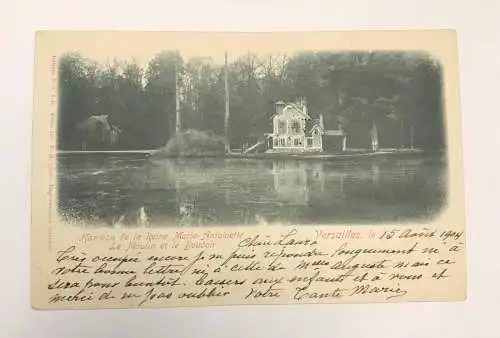 Hameau de la Reine Marie-Antoinette
Le Moulin et le Boudoir
Versailles, le 15 Août 1904
Chère Laura
Très occupée encore je ne puis répondre longuement ni à
votre bonne lettre ni à celle de Melle Auguste mais ce
sera pour bientôt. Baisers aux enfants et à vous et
merci de m'pas oublier Votre Tante Marie